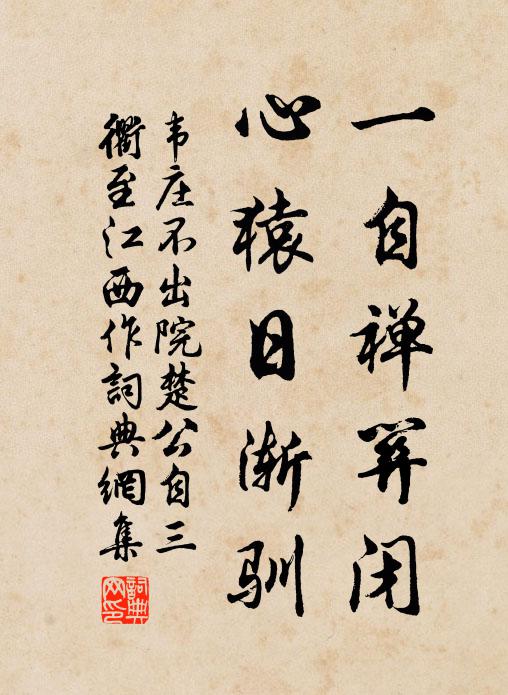 一自禅关闭
心猿日渐驯
韦庄不出院楚公自三
衢至江西作詞典網集
詞典
网印